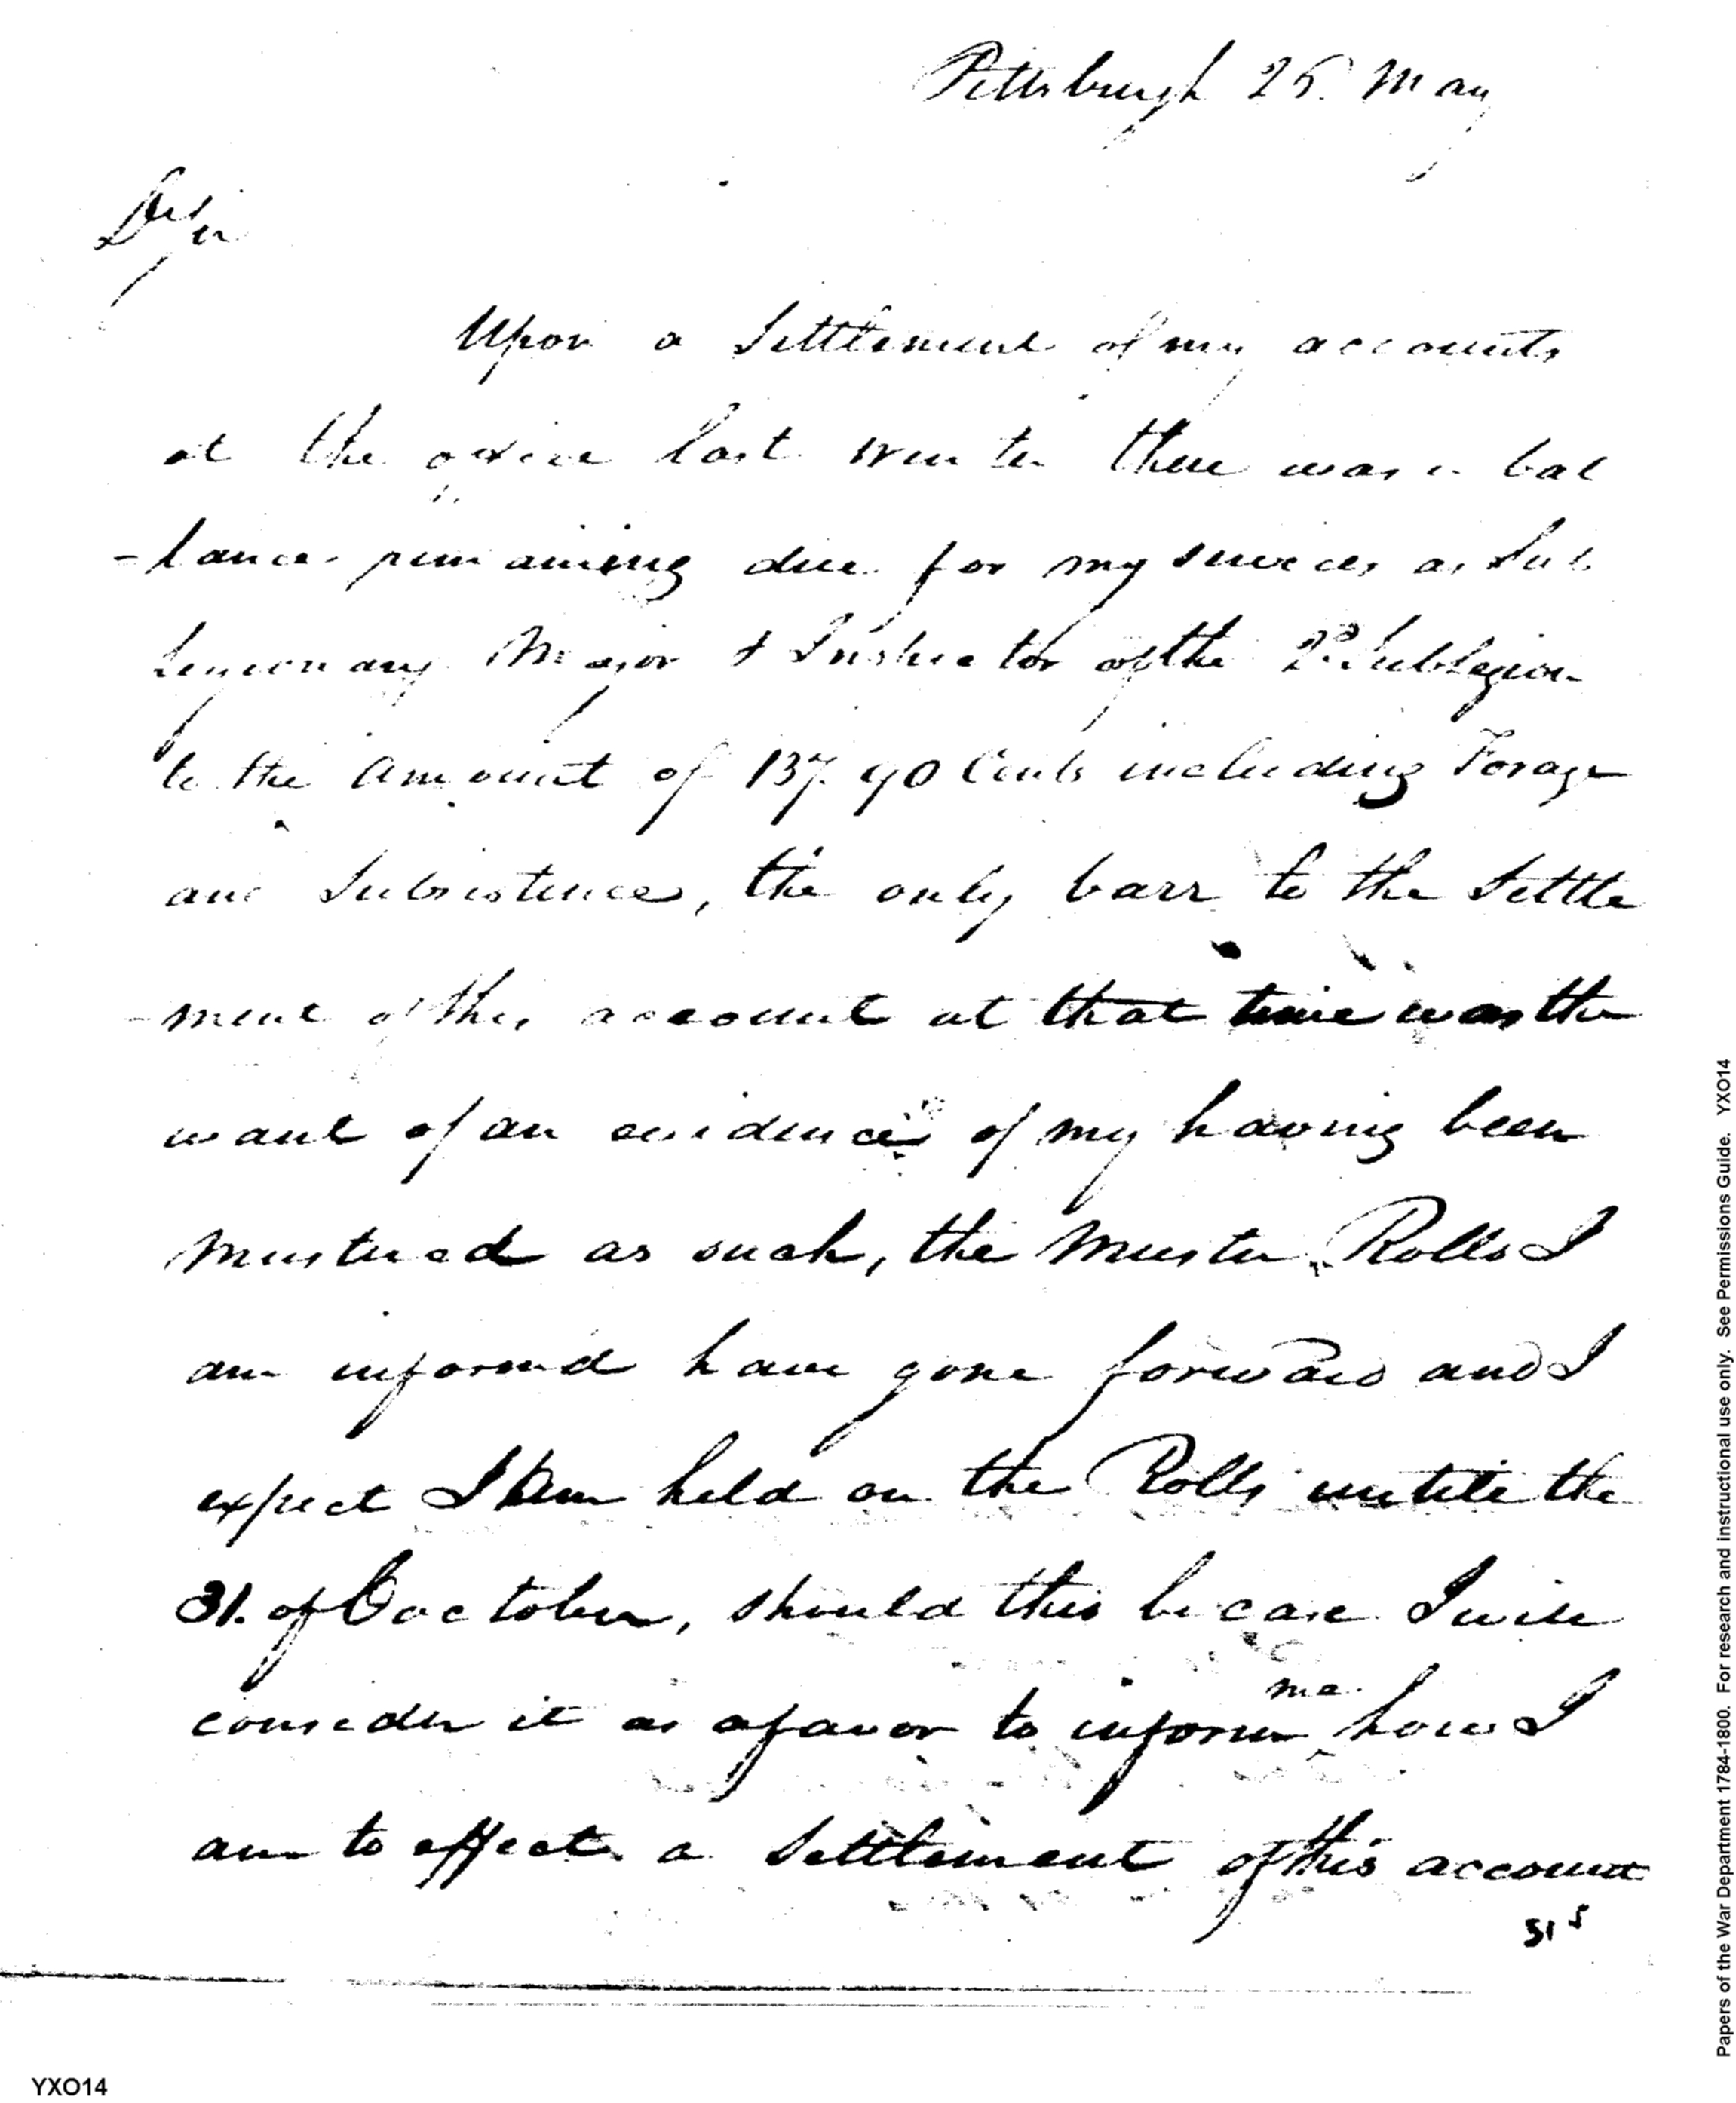 Pittsburgh 25. May
Dr Sir
Upon a Settlement of my accounts
at the office last winter there was a bal
-lance remaining due for my services as Sub
Legionary Major & Inspector of the 2d Sublegion
to the amount of 137. 90 Cents including Forage
and Subsistence, the only barr to the Settle
-ment of this account at that time was the
want of an evidence of my having been
mustered as such, the Muster Rolls I
am informd have gone forward and I
expect I am held on the Rolls untill the
31. of October, should this be case I will
consider it as a favor to inform me how I
am to effect a Settlement of this account
YXO14
Papers of the War Department 1784-1800. For research and instructional use only. See Permissions Guide. YXO14